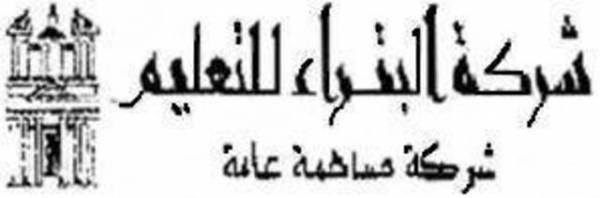 شركة البتراء للتعليم
شركة مساهمة عامة